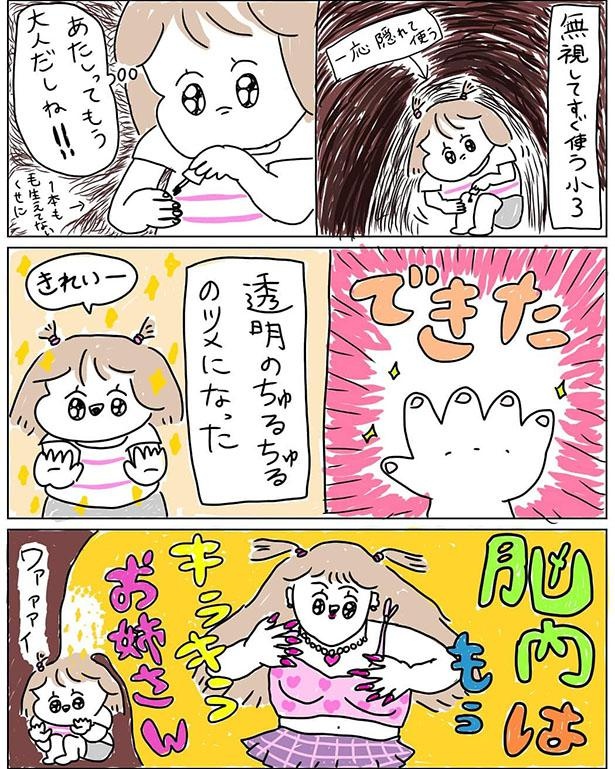 無視してすぐ使う小3
一応隠れて使う
あたしってもう
大人だしね!!!
1本も
毛生えてない
くせに
できた
透明のちゅるちゅる
のツメになった
きれいー
脳内は
もう
キラキラ
お姉さん
ワァァァイ